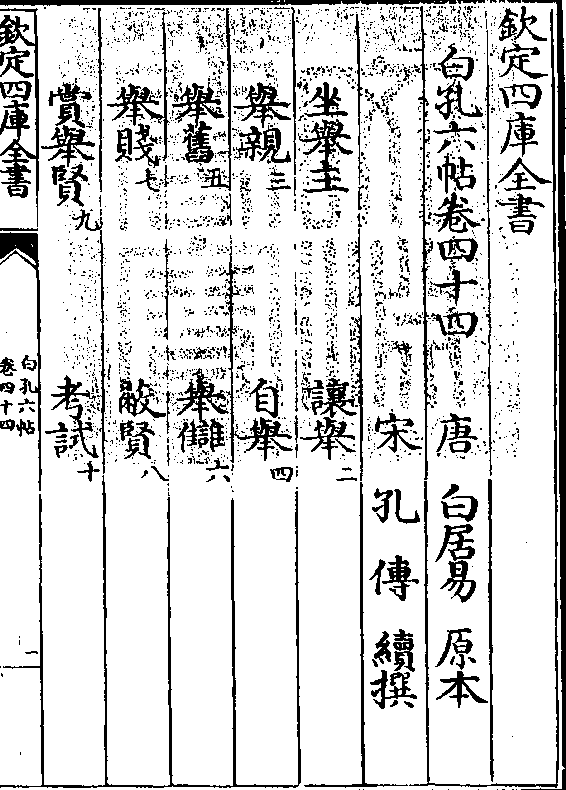 欽定四庫全書
白孔六帖卷四十四 唐 白居易 原本
宋 孔傳 續撰
坐舉主 讓舉二
舉親三 自舉四
舉舊五 舉讎六
舉賤七 蔽賢八
賞舉賢九 考試十
欽定四庫全書
白孔六帖
卷四十四
一